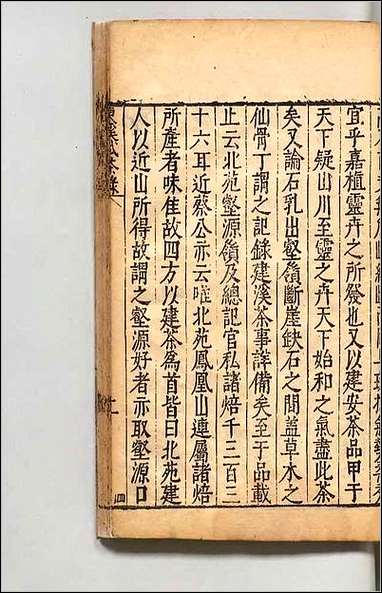 宜乎嘉植靈卉之所發也又以建安茶品甲于
天下疑山川至靈之卉天下始和之氣盡此茶
矣又論石乳出壑嶺斷崖缺石之間蓋草木之
仙骨丁謂之記録建溪茶事詳備矣至于品載
止云北苑壑源嶺及總記官私諸焙千三百三
十六耳近蔡公亦云唯北苑鳳凰山連屬諸焙
所產者味佳故四方以建茶爲首皆曰北苑建
人以近山所得故謂之壑源好者亦取壑源口